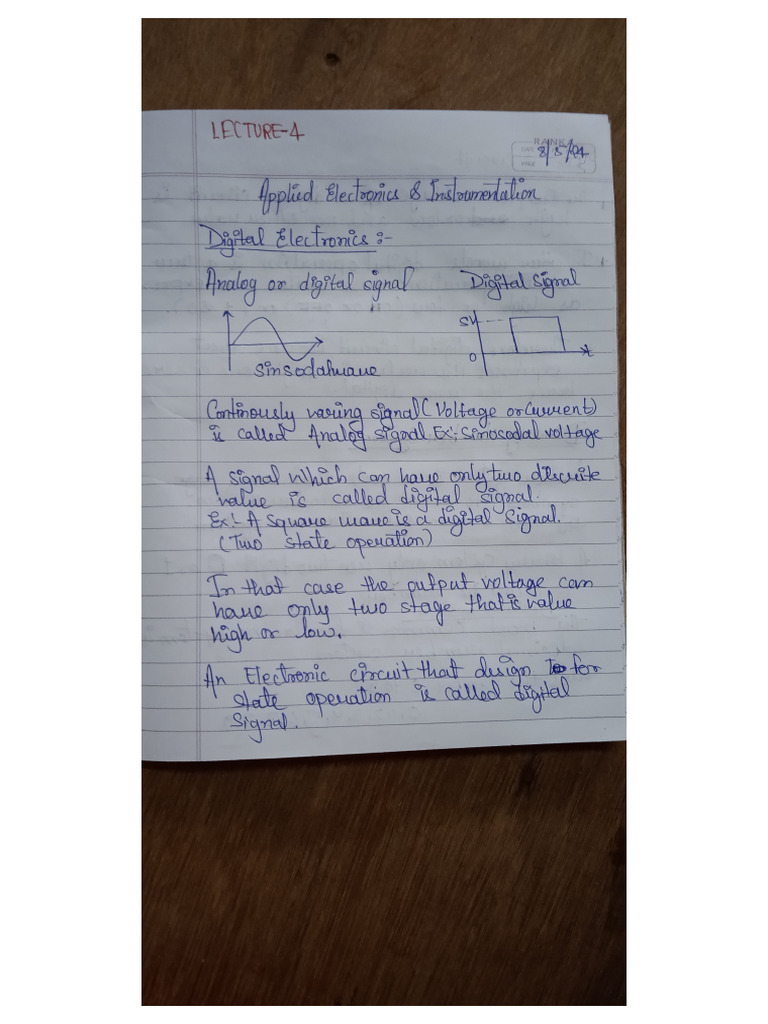 LECTURE-4
RANKA
DATE 8/5/24
PAGE
Applied Electronics & Instrumentation
Digital Electronics :-
Analog or digital signal
Digital Signal
5V
0
t
Sinsodalwave
Continously varing signal (Voltage or Current)
is called Analog signal Ex:- Sinosodal voltage
A signal which can have only two discrite
value is called digital signal.
Ex:- A square wave is a digital signal.
(Two state operation)
In that case the output voltage can
have only two stage that is value
high or low.
An Electronic circuit that design for
state operation is called digital
signal.